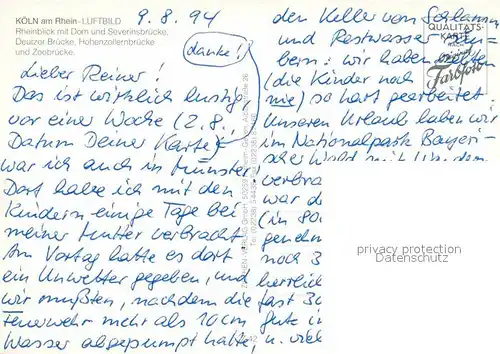 KÖLN am Rhein - LUFTBILD
Rheinblick mit Dom und Severinsbrücke,
Deutzer Brücke, Hohenzollernbrücke
und Zoobrücke.
9.8.94
danke!
Lieber Reiner!
Das ist wirklich lustig,
vor einer Woche (2.8.
Datum Deiner Karte)
war ich auch in Münster.
Dort habe ich mit den
Kindern einige Tage bei
meiner Mutter verbracht.
Am Vortag hatte es dort
ein Unwetter gegeben, und
wir mußten, nachdem die
Feuerwehr mehr als 10 cm
Wasser abgepumpt hatte,
den Keller von Schlamm
und Restwasser
bern: wir haben selten
(die Kinder noch
nie) so hart gearbeitet!
Unseren Urlaub haben wir
im Nationalpark Bayeri-
scher Wald mit
verbra
war d
(in 80
gend
noch 3
herrlich
fast 30
gute
u. viel
QUALITÄTS-
KARTE
Farbfoto
privacy protection
Datenschutz